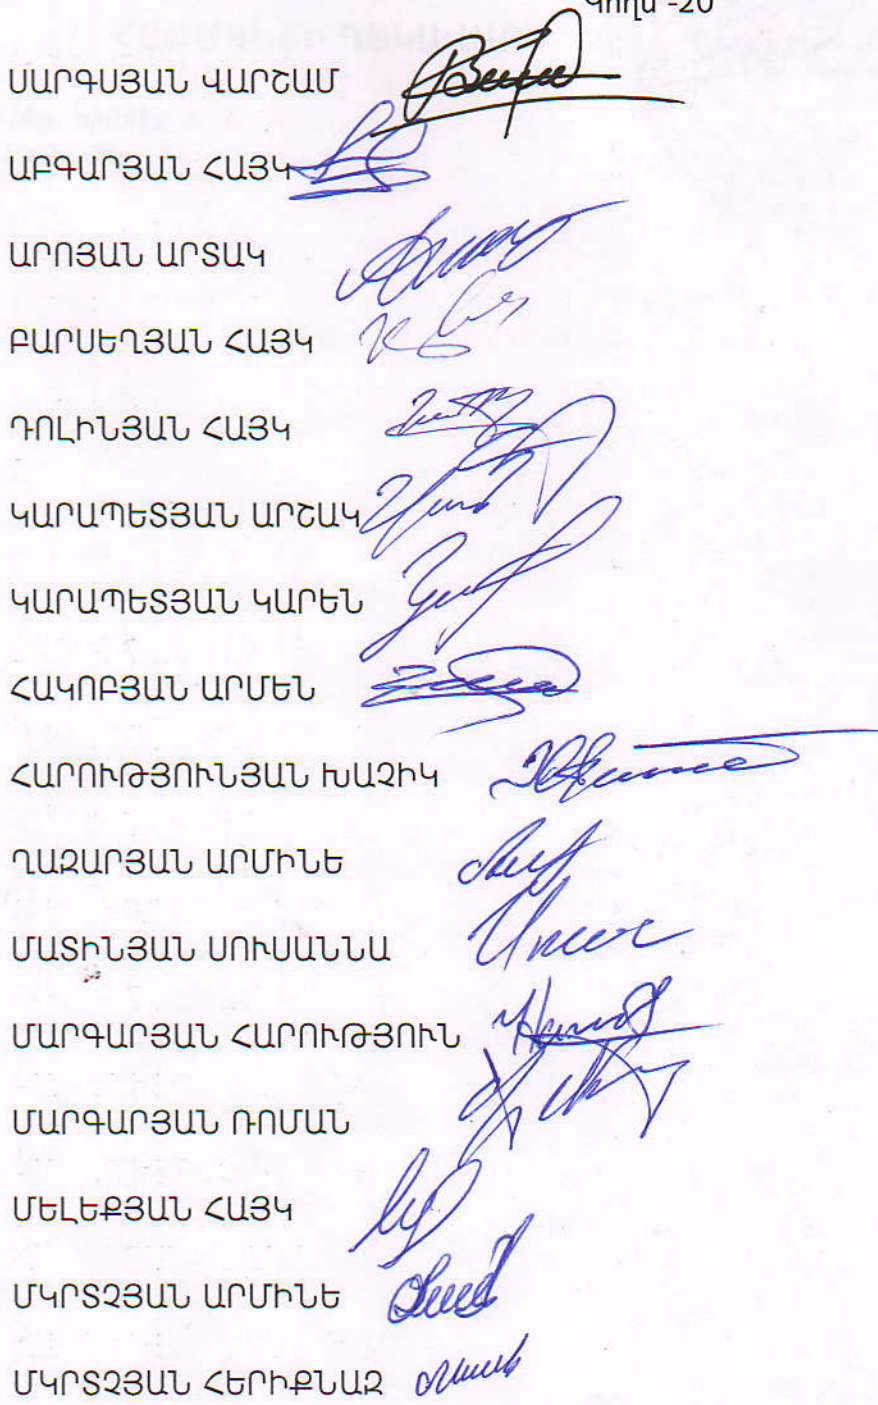 Կողմ -20
ՍԱՐԳՍՅԱՆ ՎԱՐՇԱՄ
ԱԲԳԱՐՅԱՆ ՀԱՅԿ
ԱՐՈՅԱՆ ԱՐՏԱԿ
ԲԱՐՍԵՂՅԱՆ ՀԱՅԿ
ԴՈԼԻՆՅԱՆ ՀԱՅԿ
ԿԱՐԱՊԵՏՅԱՆ ԱՐՇԱԿ
ԿԱՐԱՊԵՏՅԱՆ ԿԱՐԵՆ
ՀԱԿՈԲՅԱՆ ԱՐՄԵՆ
ՀԱՐՈՒԹՅՈՒՆՅԱՆ ԽԱՉԻԿ
ՂԱԶԱՐՅԱՆ ԱՐՄԻՆԵ
ՄԱՏԻՆՅԱՆ ՍՈՒՍԱՆՆԱ
ՄԱՐԳԱՐՅԱՆ ՀԱՐՈՒԹՅՈՒՆ
ՄԱՐԳԱՐՅԱՆ ՌՈՄԱՆ
ՄԵԼԵՔՅԱՆ ՀԱՅԿ
ՄԿՐՏՉՅԱՆ ԱՐՄԻՆԵ
ՄԿՐՏՉՅԱՆ ՀԵՐԻՔՆԱԶ